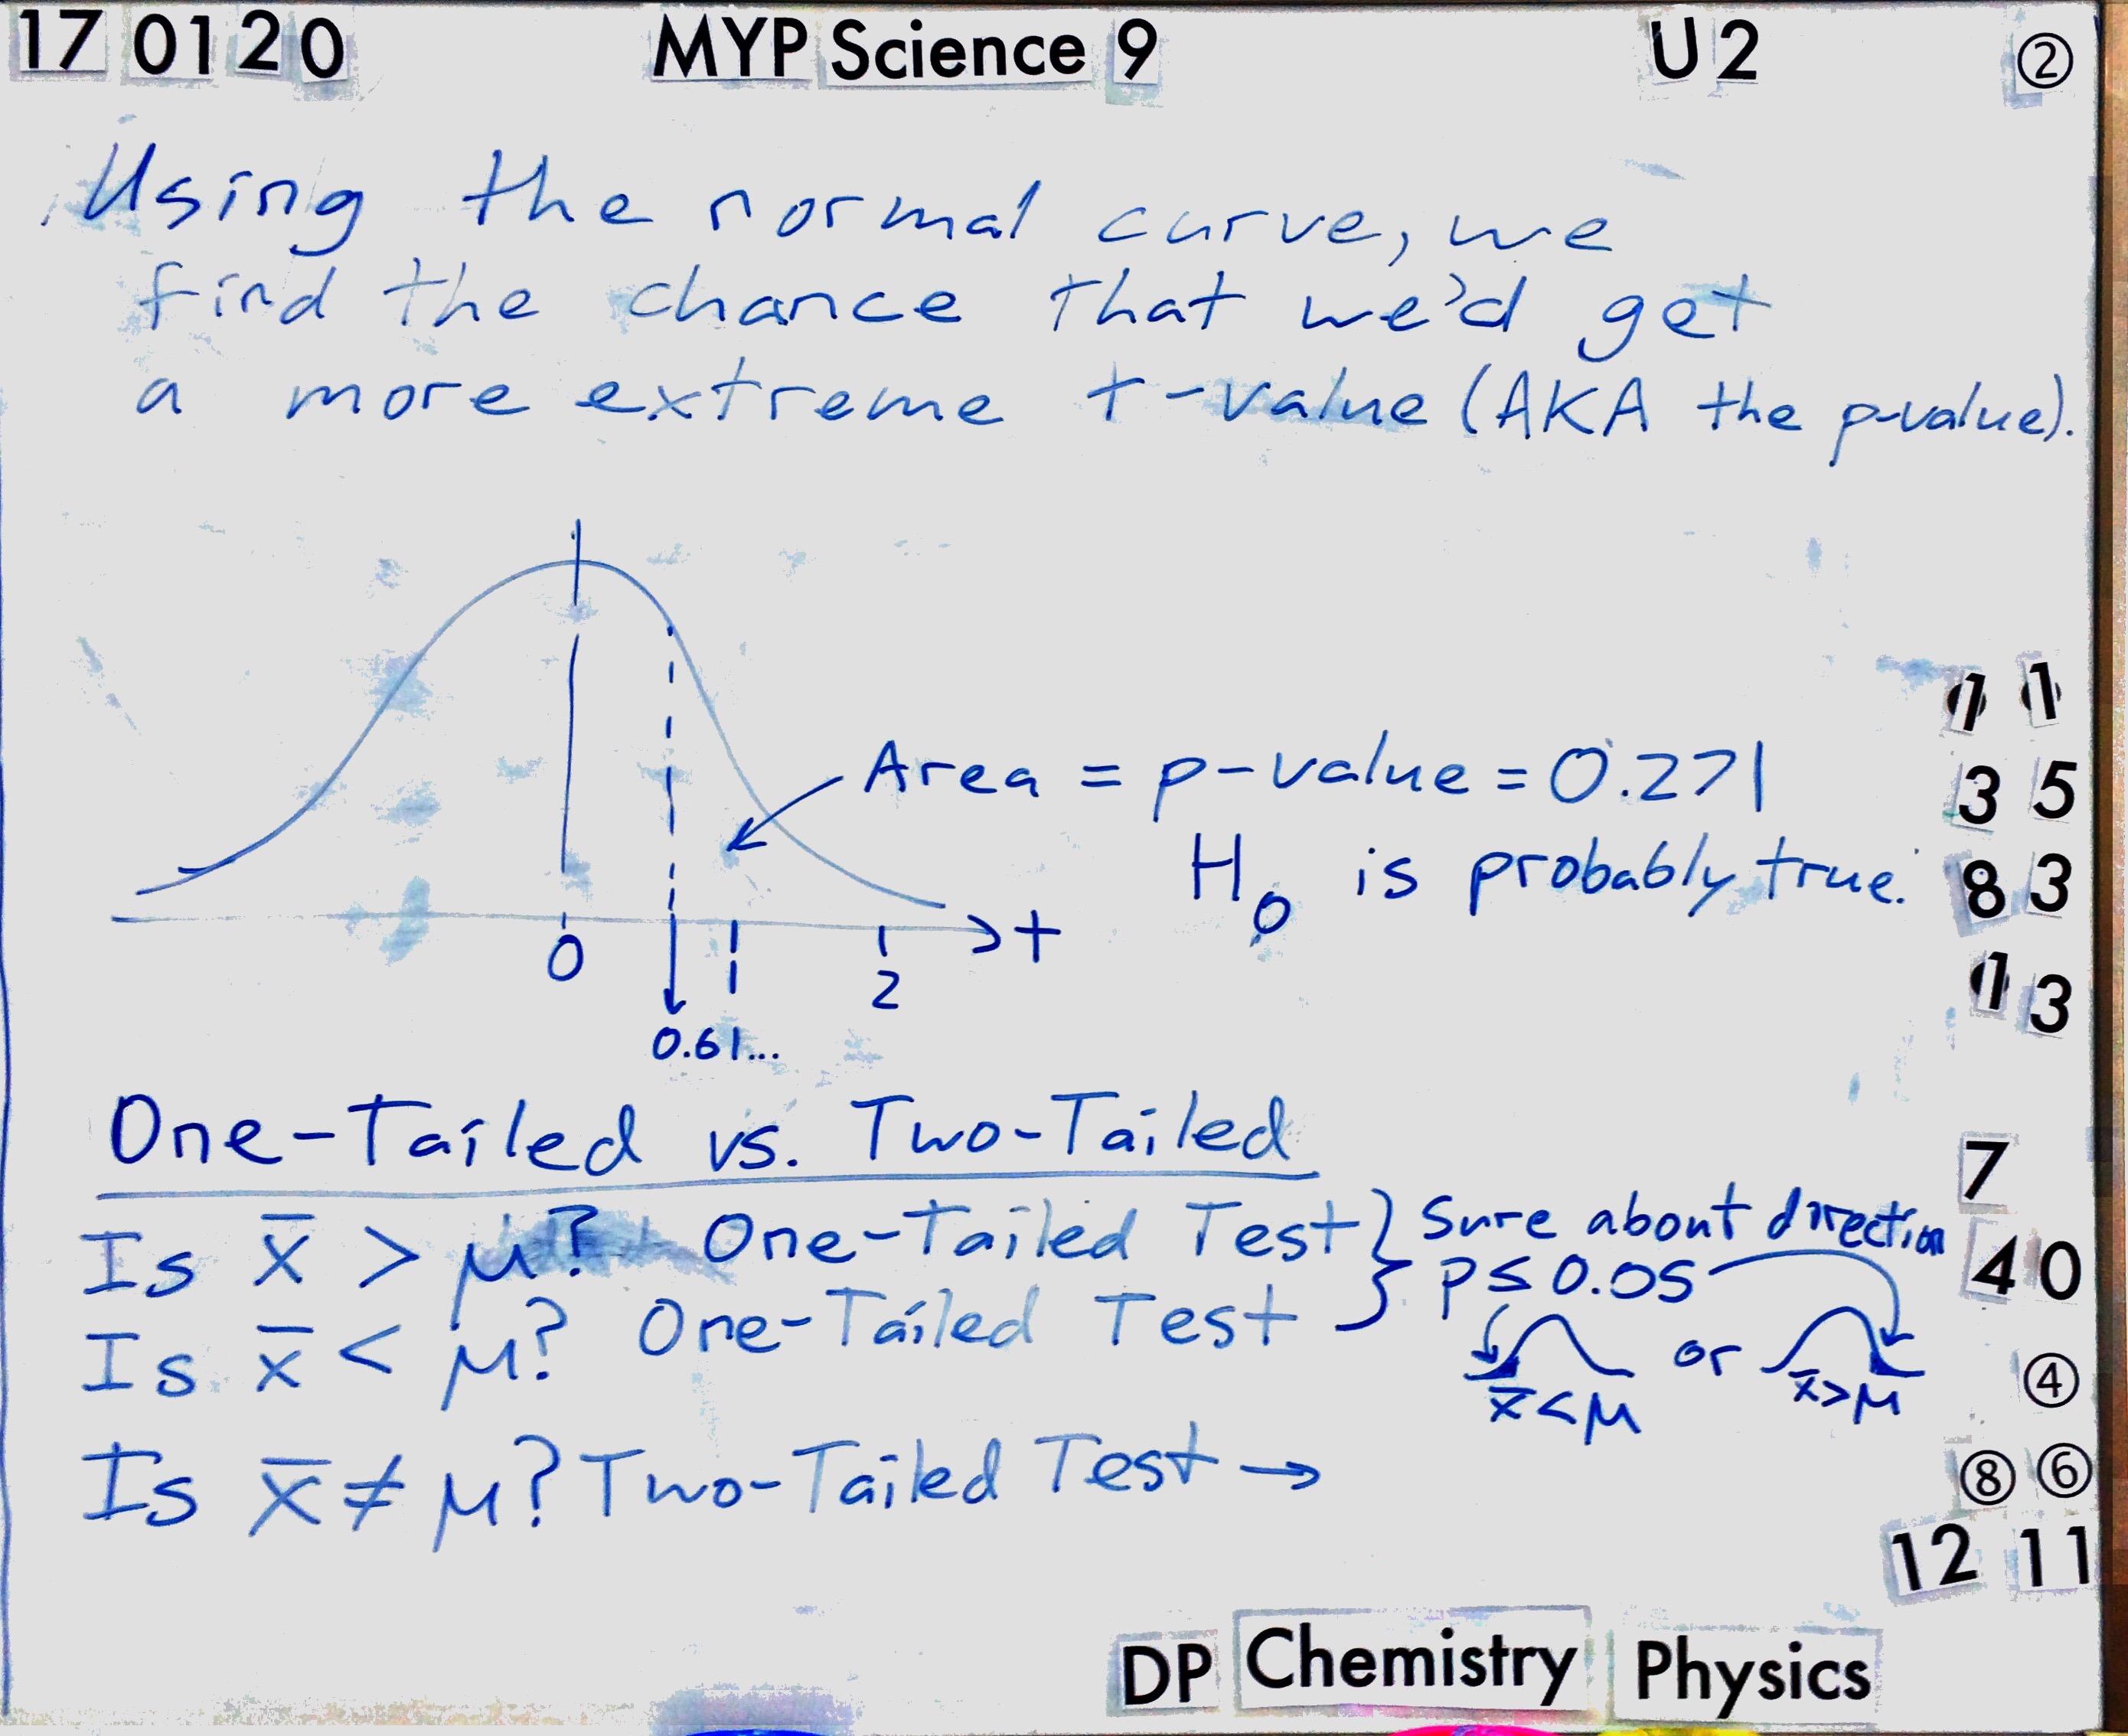 17 01 20 MYP Science 9 U2 ②
Using the normal curve, we
find the chance that we'd get
a more extreme t-value (AKA the p-value).
Area = p-value = 0.271
H₀ is probably true.
0 1 2 t
0.61...
One-Tailed vs. Two-Tailed
Is x̄ > μ? One-Tailed Test } Sure about direction
Is x̄ < μ? One-Tailed Test } p ≤ 0.05
or
x̄ < μ x̄ > μ
Is x̄ ≠ μ? Two-Tailed Test →
1 1
3 5
8 3
1 3
7
4 0
④
⑧ ⑥
12 11
DP Chemistry Physics